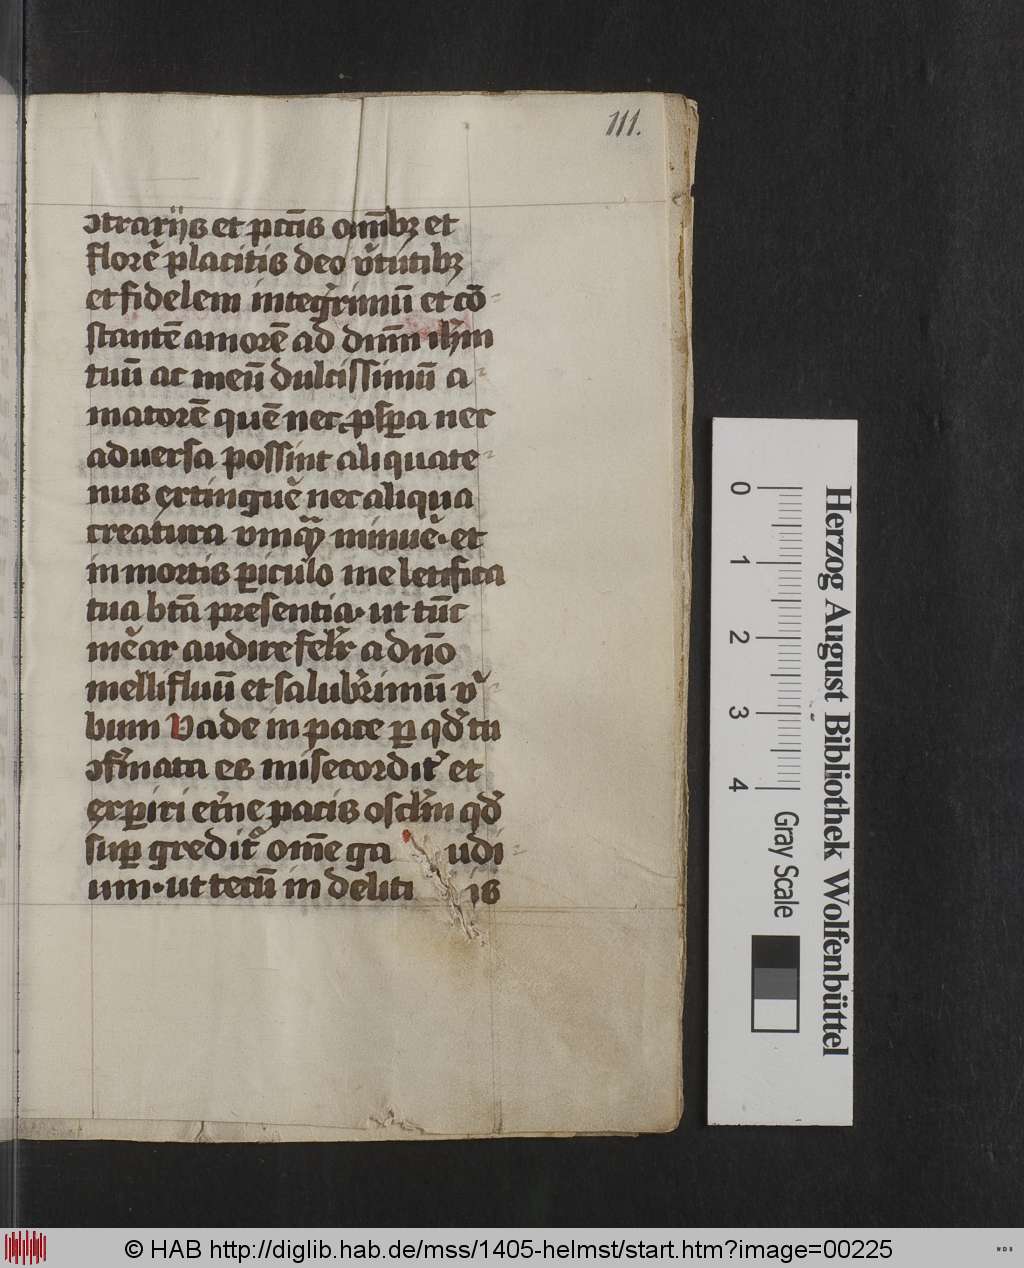 111.
ↄtrarijs et pctīs om̄ibꝫ et
florē placitis deo v̄tutibꝫ
et fidelem inteḡrimū et cō-
stantē amorē ad dnm̄ ihm̄
tuū ac meū dulcissimū a-
matorē quē nec ꝓspera nec
aduersa possint aliquate-
nus extinguē nec aliqua
creatura vmqᷓ minuē · et
in mortis ꝑiculo me letifica
tua btā presentia · ut tūc
mēar audire felir̄ a dn̄o
mellifluū et salubrimū v̄-
bum Vade in pace ꝑ qd̄ tu
ↄfirmata es misecordit᷑ et
exꝑiri et̄ne pacis osclm̄ qd̄
suꝑgredit᷑ om̄e ga udi-
um · ut tecū in deliti is
Herzog August Bibliothek Wolfenbüttel
0 1 2 3 4
Gray Scale
© HAB http://diglib.hab.de/mss/1405-helmst/start.htm?image=00225